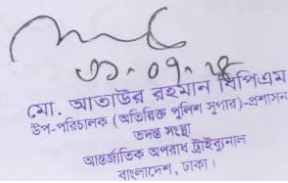 ৩১.০৭.২৫
মো. আতাউর রহমান বিপিএম
উপ-পরিচালক (অতিরিক্ত পুলিশ সুপার)-প্রশাসন
তদন্ত সংস্থা
আন্তর্জাতিক অপরাধ ট্রাইব্যুনাল
বাংলাদেশ, ঢাকা।